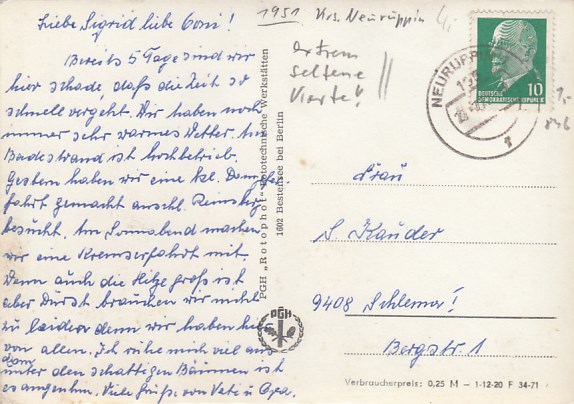 Liebe Sigrid liebe Coni!
Bereits 5 Tage sind wir
hier schade, daß die Zeit so
schnell vergeht. Wir haben noch
immer sehr warmes Wetter. Am
Badestrand ist Hochbetrieb.
Gestern haben wir eine kl. Dampfer
fahrt gemacht anschl. Reinsberg
besucht. Am Sonnabend machen
wir eine Kremserfahrt mit.
Wenn auch die Hitze groß ist
aber Durst brauchen wir nicht
zu leiden denn wir haben hier
von allem. Ich ruhe mich viel aus
denn unter den schattigen Bäumen ist
es angenehm. Viele Grüße von
1951 Krs. Neuruppin
extrem
seltene
Karte!
PGH „Rotophot" Fototechnische Werkstätten
1602 Bestensee bei Berlin
PGH
NEURUPPIN
10
DEUTSCHE
DEMOKRATISCHE REPUBLIK
Frau
S Kauder
9408 Schlema!
Bergstr. 1
Verbraucherpreis: 0,25 M – 1-12-20 F 34-71